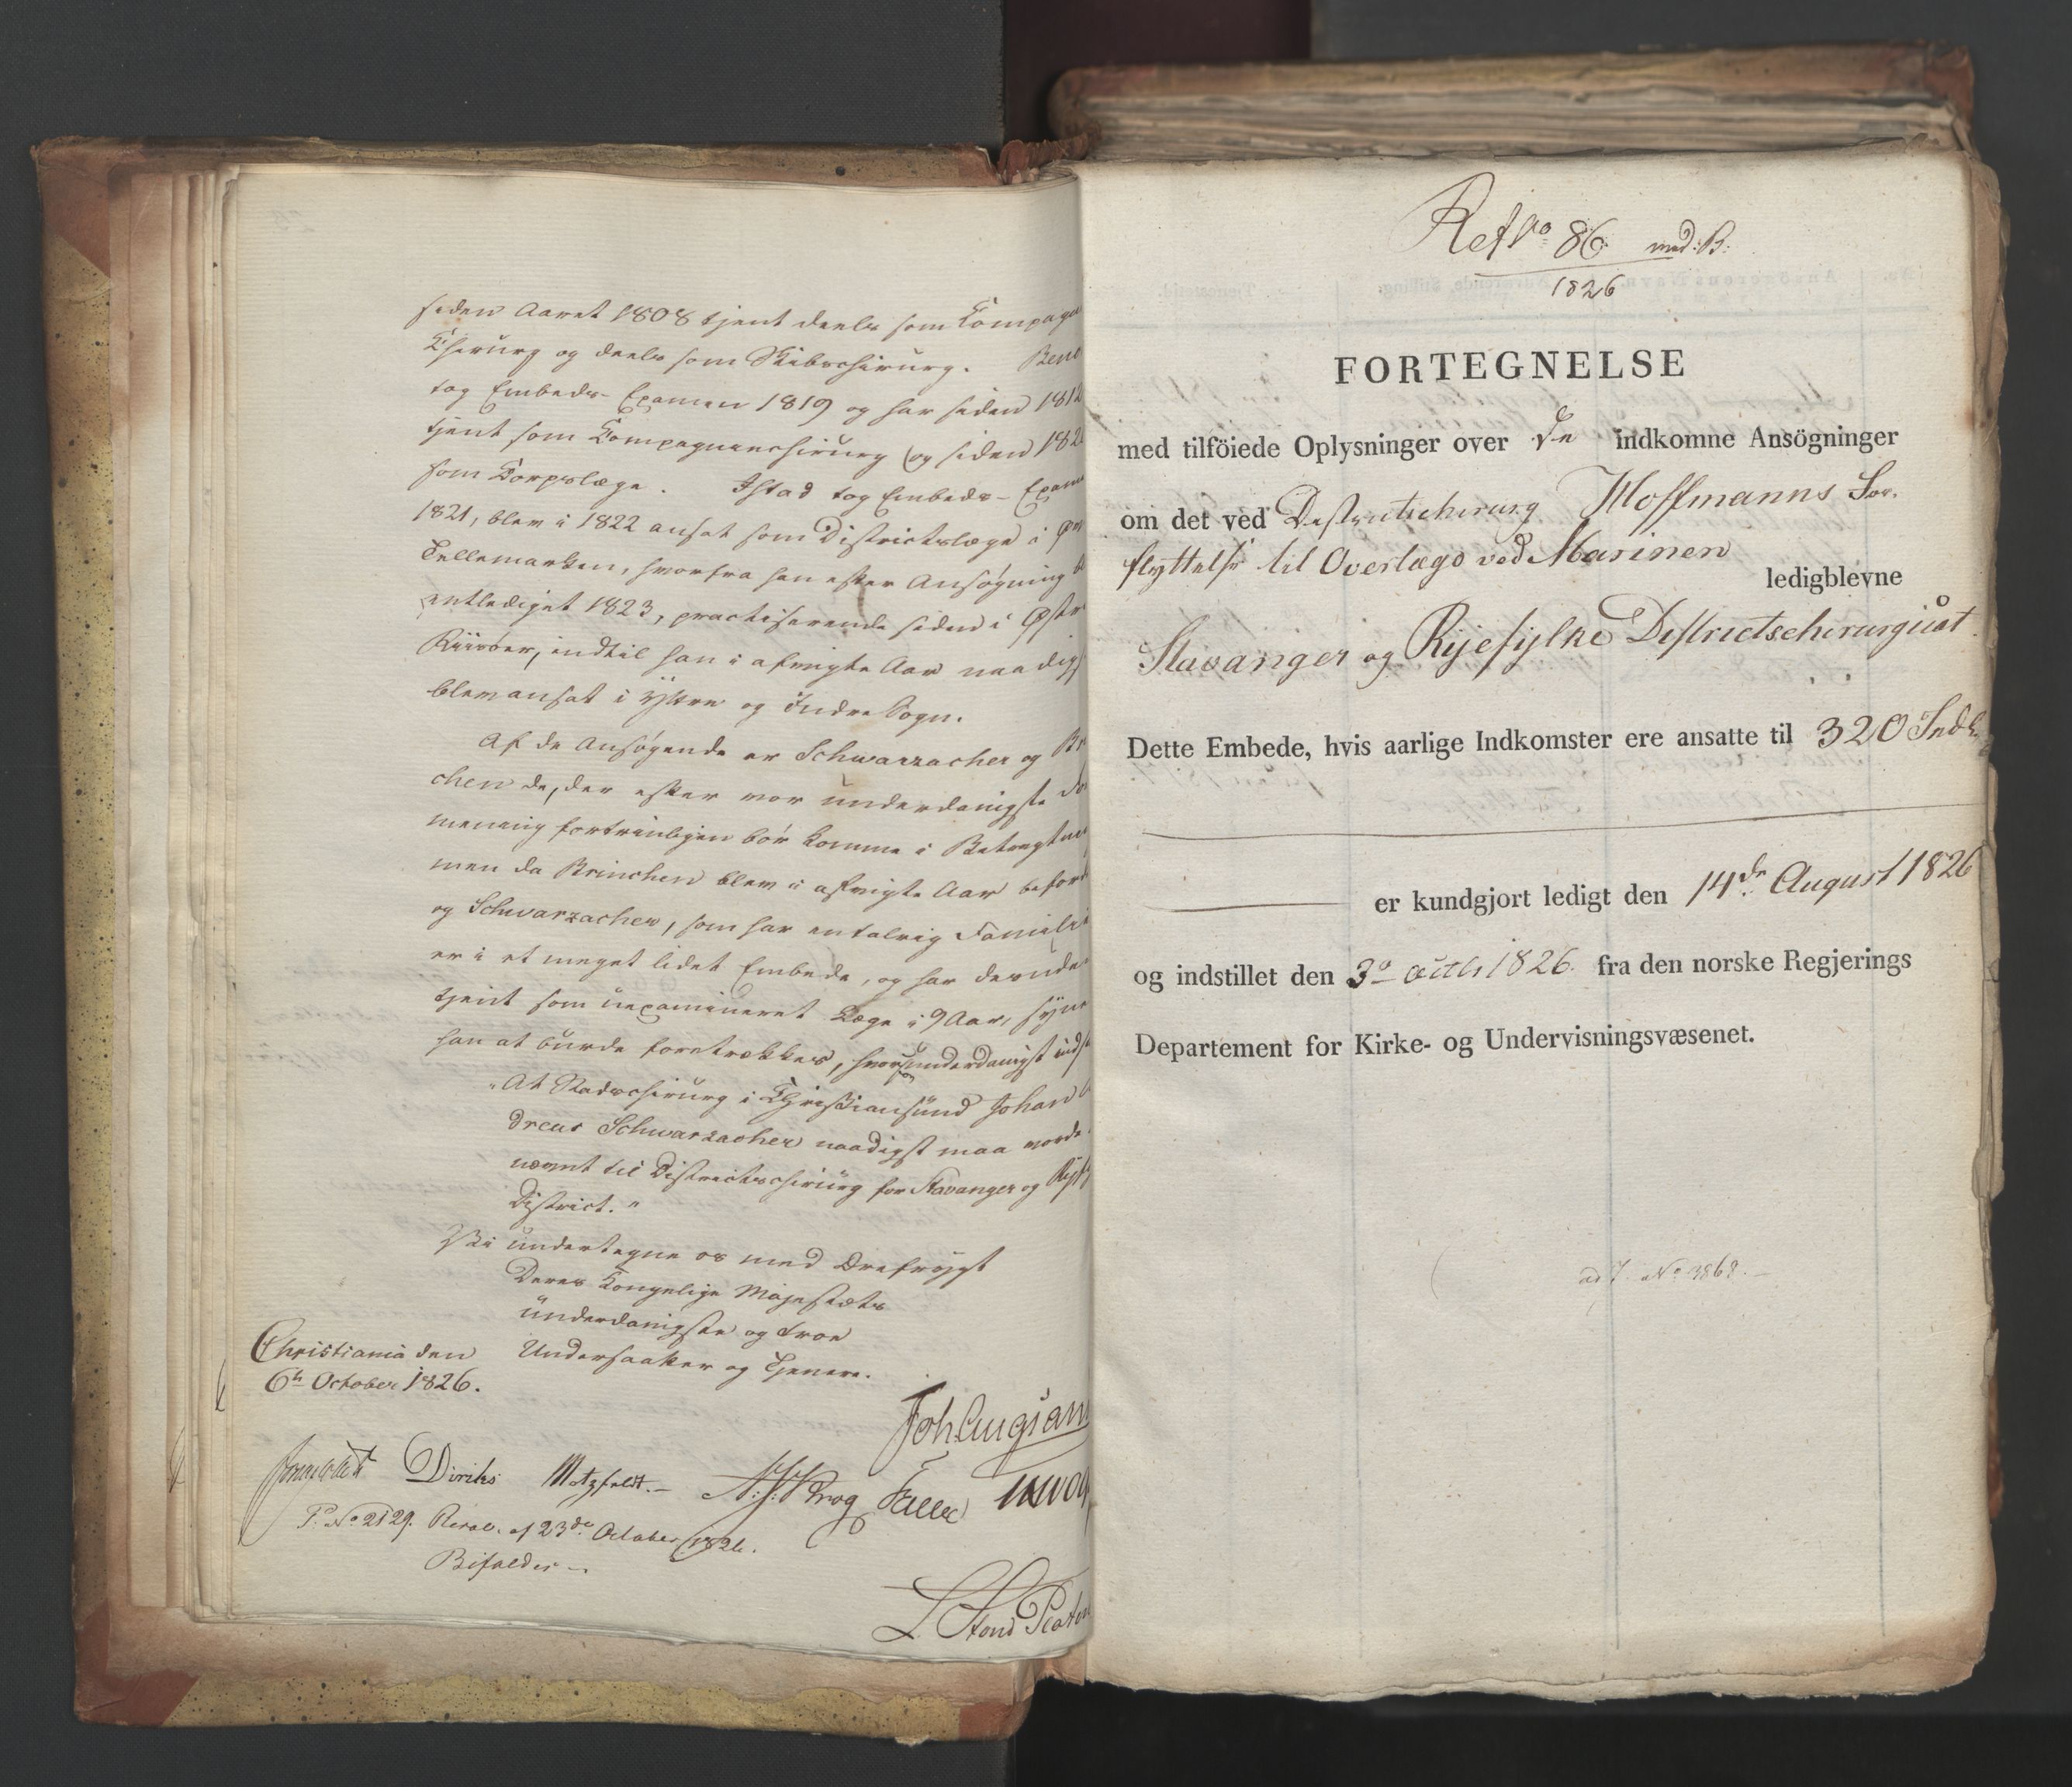 siden Aaret 1808 tjent deels som Compagn
Chirurg og deels som Skibschirurg. Ben
tog Embeds-Examen 1819 og har siden 1812
tjent som Compagniechirurg og siden 182
som Corpslæge. Istad tog Embeds-Exam
1821, blev i 1822 ansat som Districtslæge i
Tellemarken, hvorfra han efter Ansøgning b
entlediget 1823, practiserende siden i Øster
Riisøer, indtil han i afvigte Aar naadigst
blev ansat i Yttre og Indre Sogn.
Af de Ansøgende er Schwarzacher og Br
chen de, der efter vor underdanigste For
mening fortrinligen bør komme i Betragtni
men da Brinchen blev i afvigte Aar beford
og Schwarzacher, som har en talrig Famili
er i et meget lidet Embede, og har desude
tjent som uexamineret Læge i 9 Aar, syne
han at burde foretrækkes, hvorfor underdanigst inds
"At Stadschirurg i Christiansund Johan
dreas Schwarzacher naadigst maa vorde
nævnt til Districtschirurg for Stavanger og Ryef
District."
Vi undertegne os med Ærefrygt
Deres Kongelige Majestæts
underdanigste og troe
Undersaatter og Tjenere.
Christiania den
6te October 1826.
Joh. Aug. San
Diriks Motzfeldt.
Resol. af 23de October 1826.
Bifaldes
No 86 med: B:
1826
FORTEGNELSE
med tilföiede Oplysninger over de indkomne Ansögninger
om det ved Destrictschirurg Hoffmanns For-
flyttelse til Overlæge ved Marinen
ledigblevne
Stavanger og Ryefylke Districtschirurgicat
Dette Embede, hvis aarlige Indkomster ere ansatte til 320
er kundgjort ledigt den 14de August 1826
og indstillet den 3o 1826. fra den norske Regjerings
Departement for Kirke- og Undervisningsvæsenet.
ad J. No 3868.